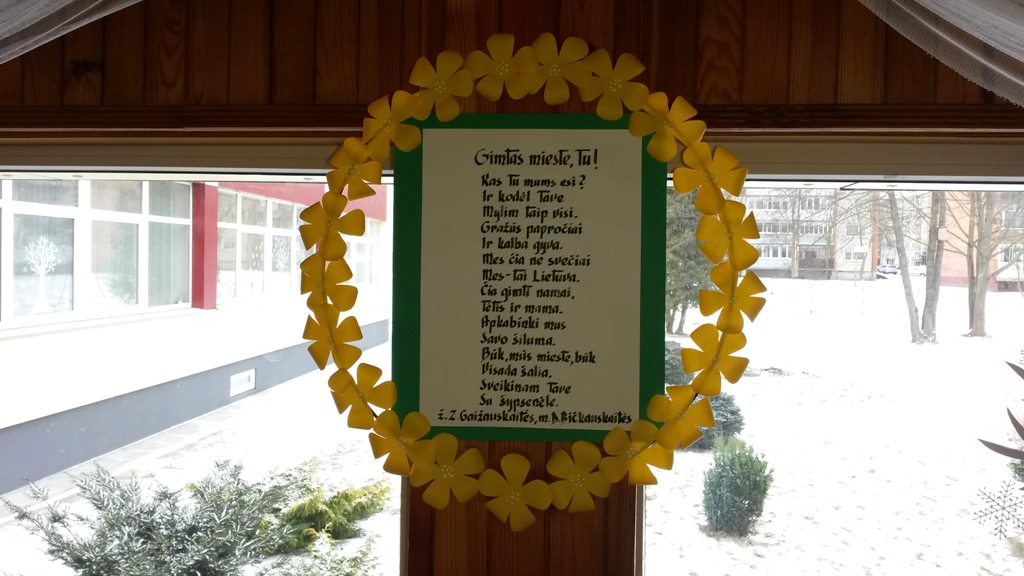 Gimtas mieste, Tu!
Kas Tu mums esi?
Ir kodėl Tave
Mylim taip visi.
Gražūs papročiai
Ir kalba gyva.
Mes čia ne svečiai
Mes-tai Lietuva.
Čia gimti namai,
Tėtis ir mama.
Apkabinki mus
Savo šiluma.
Būk, mūs mieste, būk
Visada žalia.
Sveikinam Tave
Su šypsenėle.
ž. Z. Gaižauskaitės, m. B. Bičkauskaitės